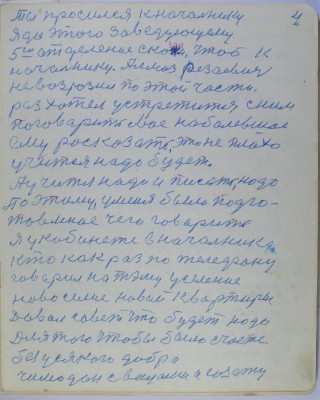 4
Ты просился к началнику
я до этого заведующему
5ым отделение сказал, чтоб к
началнику. Алмаз резаевич
невозрозил по этой части.
раз хотел устретится с ним
поговарить свое наболевшое
ему росказать, это не плохо
учится надо будет.
Ну учится надо и писать, надо
По этому, у меня было подго-
товленное чего говарить
я у кабинете в началника
кто как раз по теледрону
говарил на тэму уселение
новоселие новай квартиры
Давал савет что будет надо
Для того чтобы было счасте
без усякого добра
чимодан с вещами